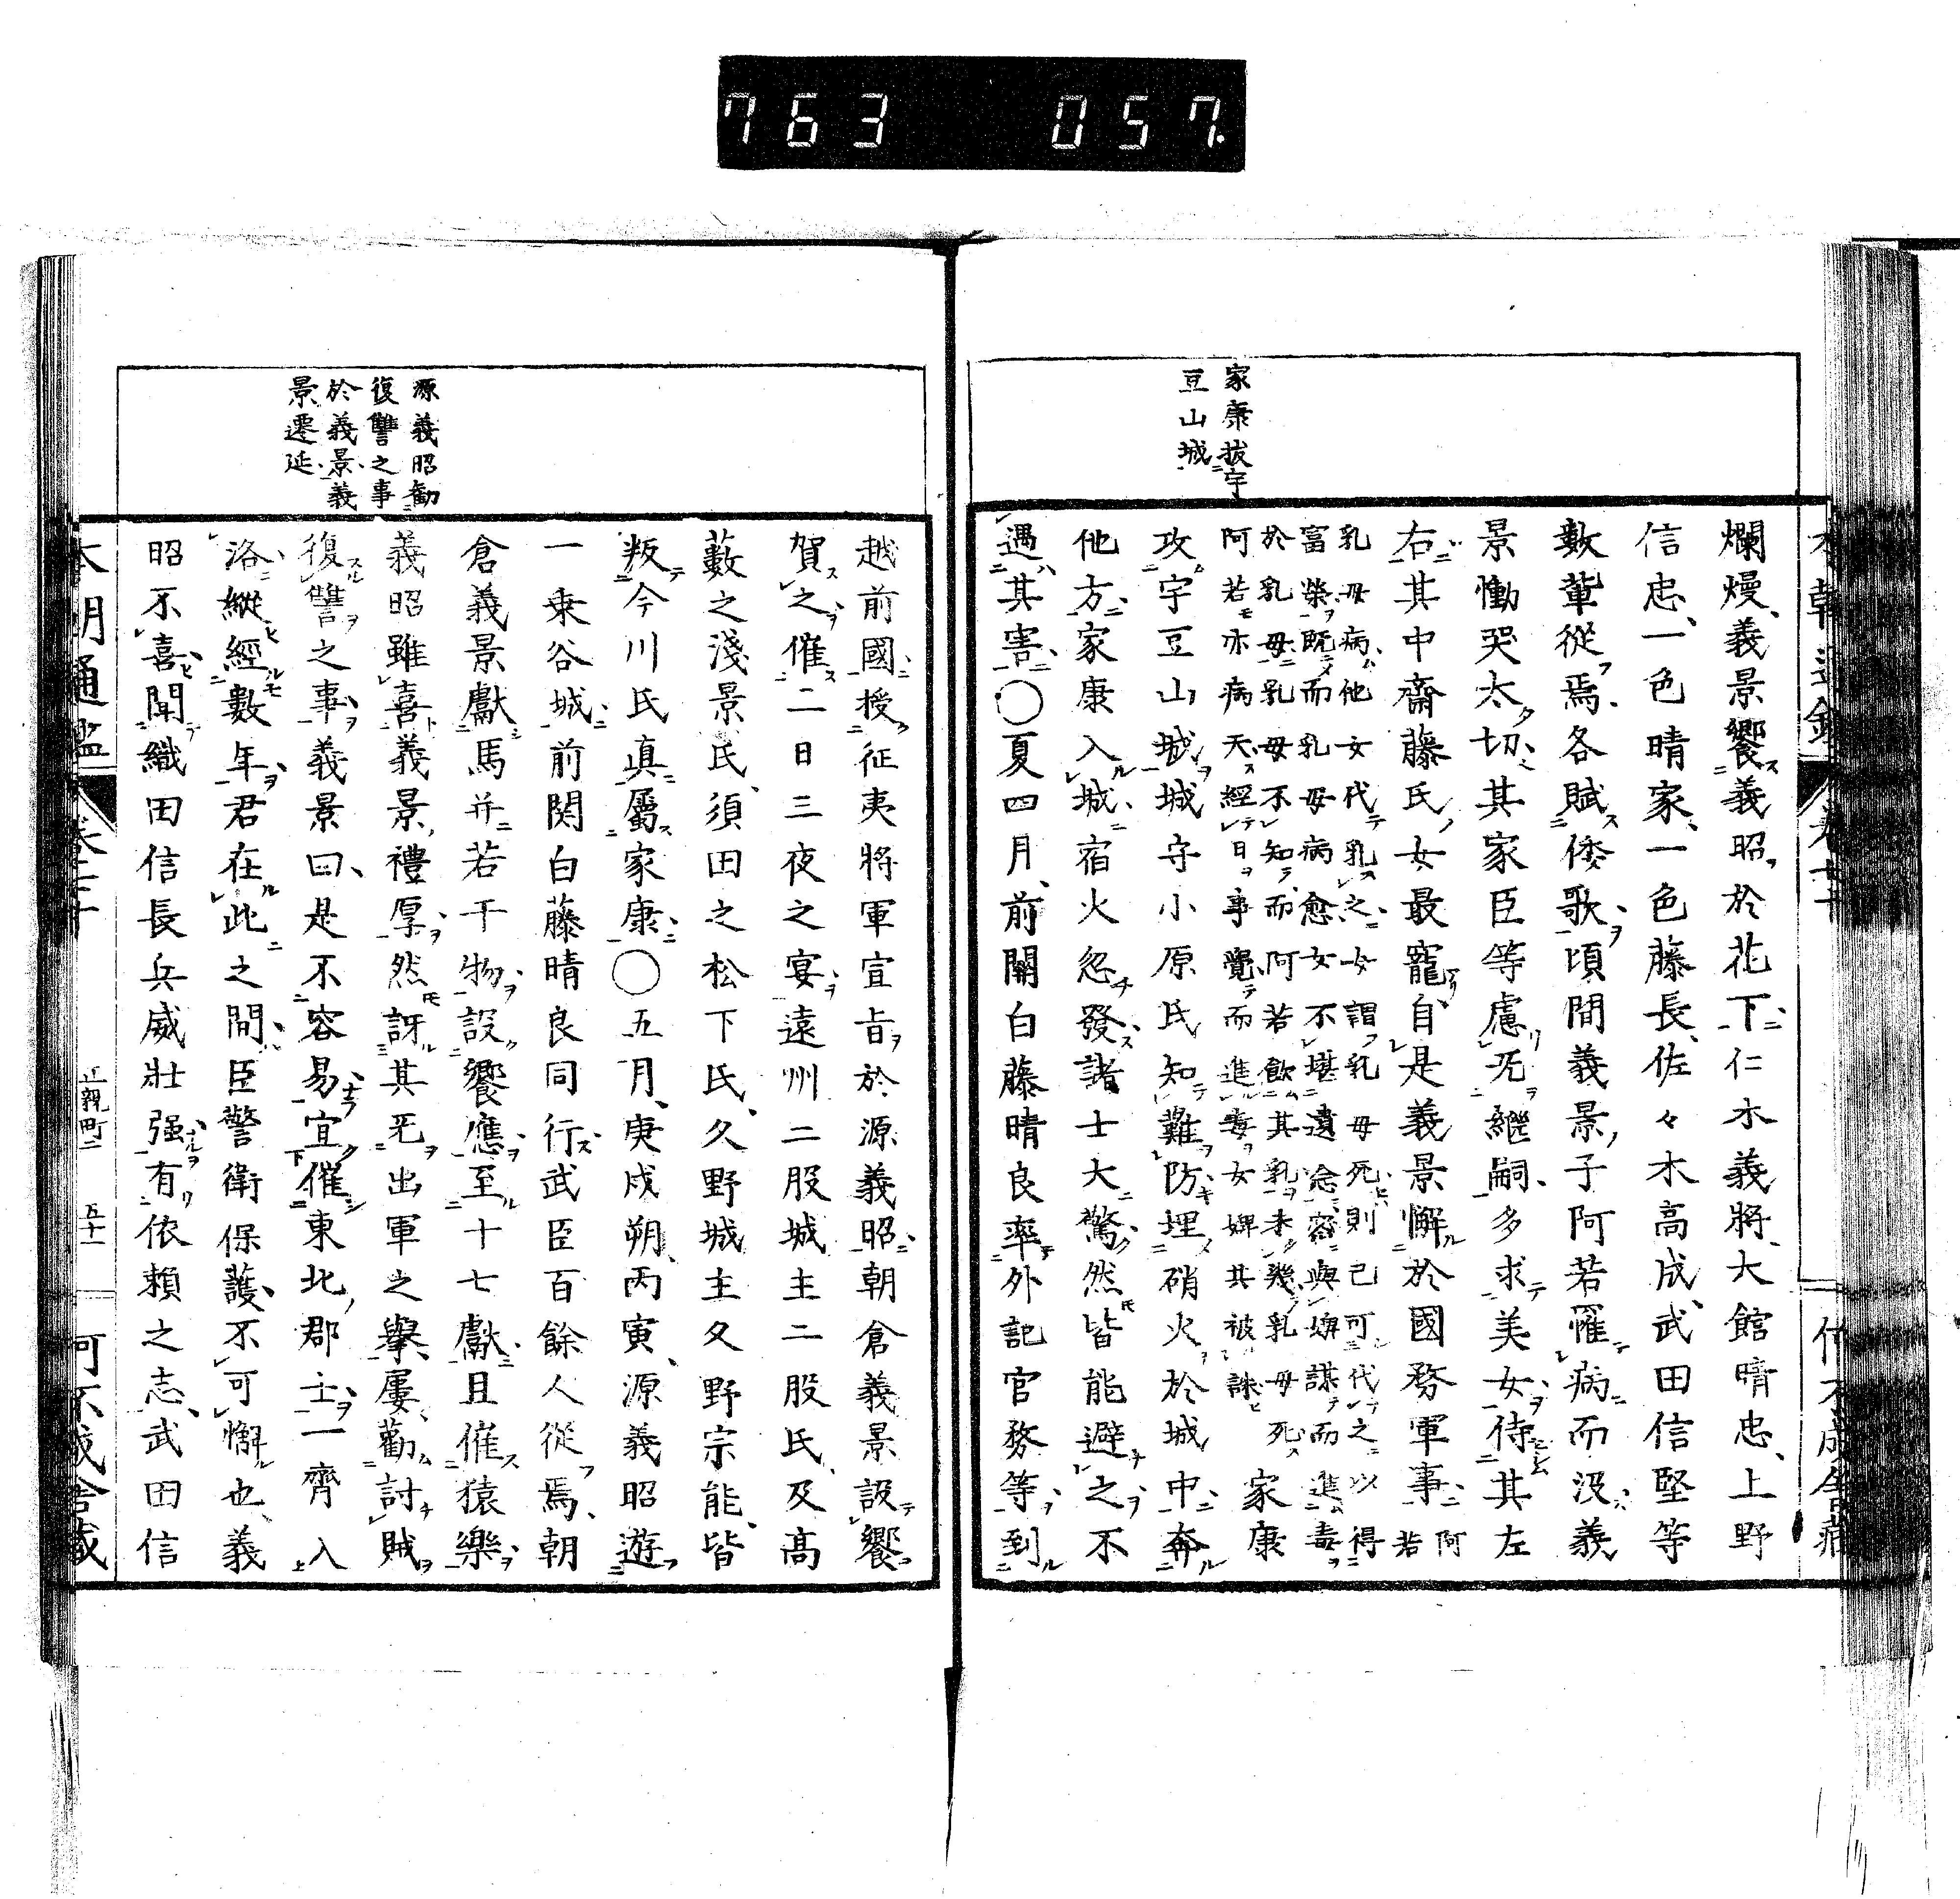 763 057
家康拔宇
豆山城
爛熳、義景饗義昭於花下仁木義將、大館晴忠、上野
信忠、一色晴家、一色藤長、佐々木高成、武田信堅等
數輩從焉、各賦倭歌、頃間義景子阿若罹病而沒義
景慟哭太切、其家臣等慮无繼嗣、多求美女侍其左
右其中齋藤氏女最寵、自是義景懈於國務軍事阿若
乳母病他女代乳之女謂乳母死則己可代之以得
富榮既而乳母病愈女不堪遺念密與婢謀而進毒
於乳母乳母不知而阿若飲其乳未幾乳母死
阿若亦病夭經日事覺而進毒女婢其被誅
家康
攻宇豆山城城守小原氏知難防埋硝火於城中奔
他方家康入城宿火忽發諸士大驚然皆能避之不
遇其害〇夏四月、前關白藤晴良率外記官務等到
源義昭勸
復讐之事
於義景義
景遷延
越前國授征夷將軍宣旨於源義昭、朝倉義景設饗
賀之、催二日三夜之宴、遠州二股城主二股氏、及高
藪之淺景氏、須田之松下氏、久野城主久野宗能、皆
叛今川氏真屬家康〇五月、庚戌朔、丙寅、源義昭遊
一乘谷城前関白藤晴良同行武臣百餘人從焉、朝
倉義景獻馬并若干物設饗應至十七獻且催猿樂
義昭雖喜義景禮厚然訝其无出軍之擧屢勸討賊
復讐之事義景曰、是不容易宜催東北郡士一齊入
洛縱經數年君在此之間臣警衛保護不可懈也、義
昭不喜聞織田信長兵威壯强有依賴之志、武田信
本朝通鑑
正親町二 五十一